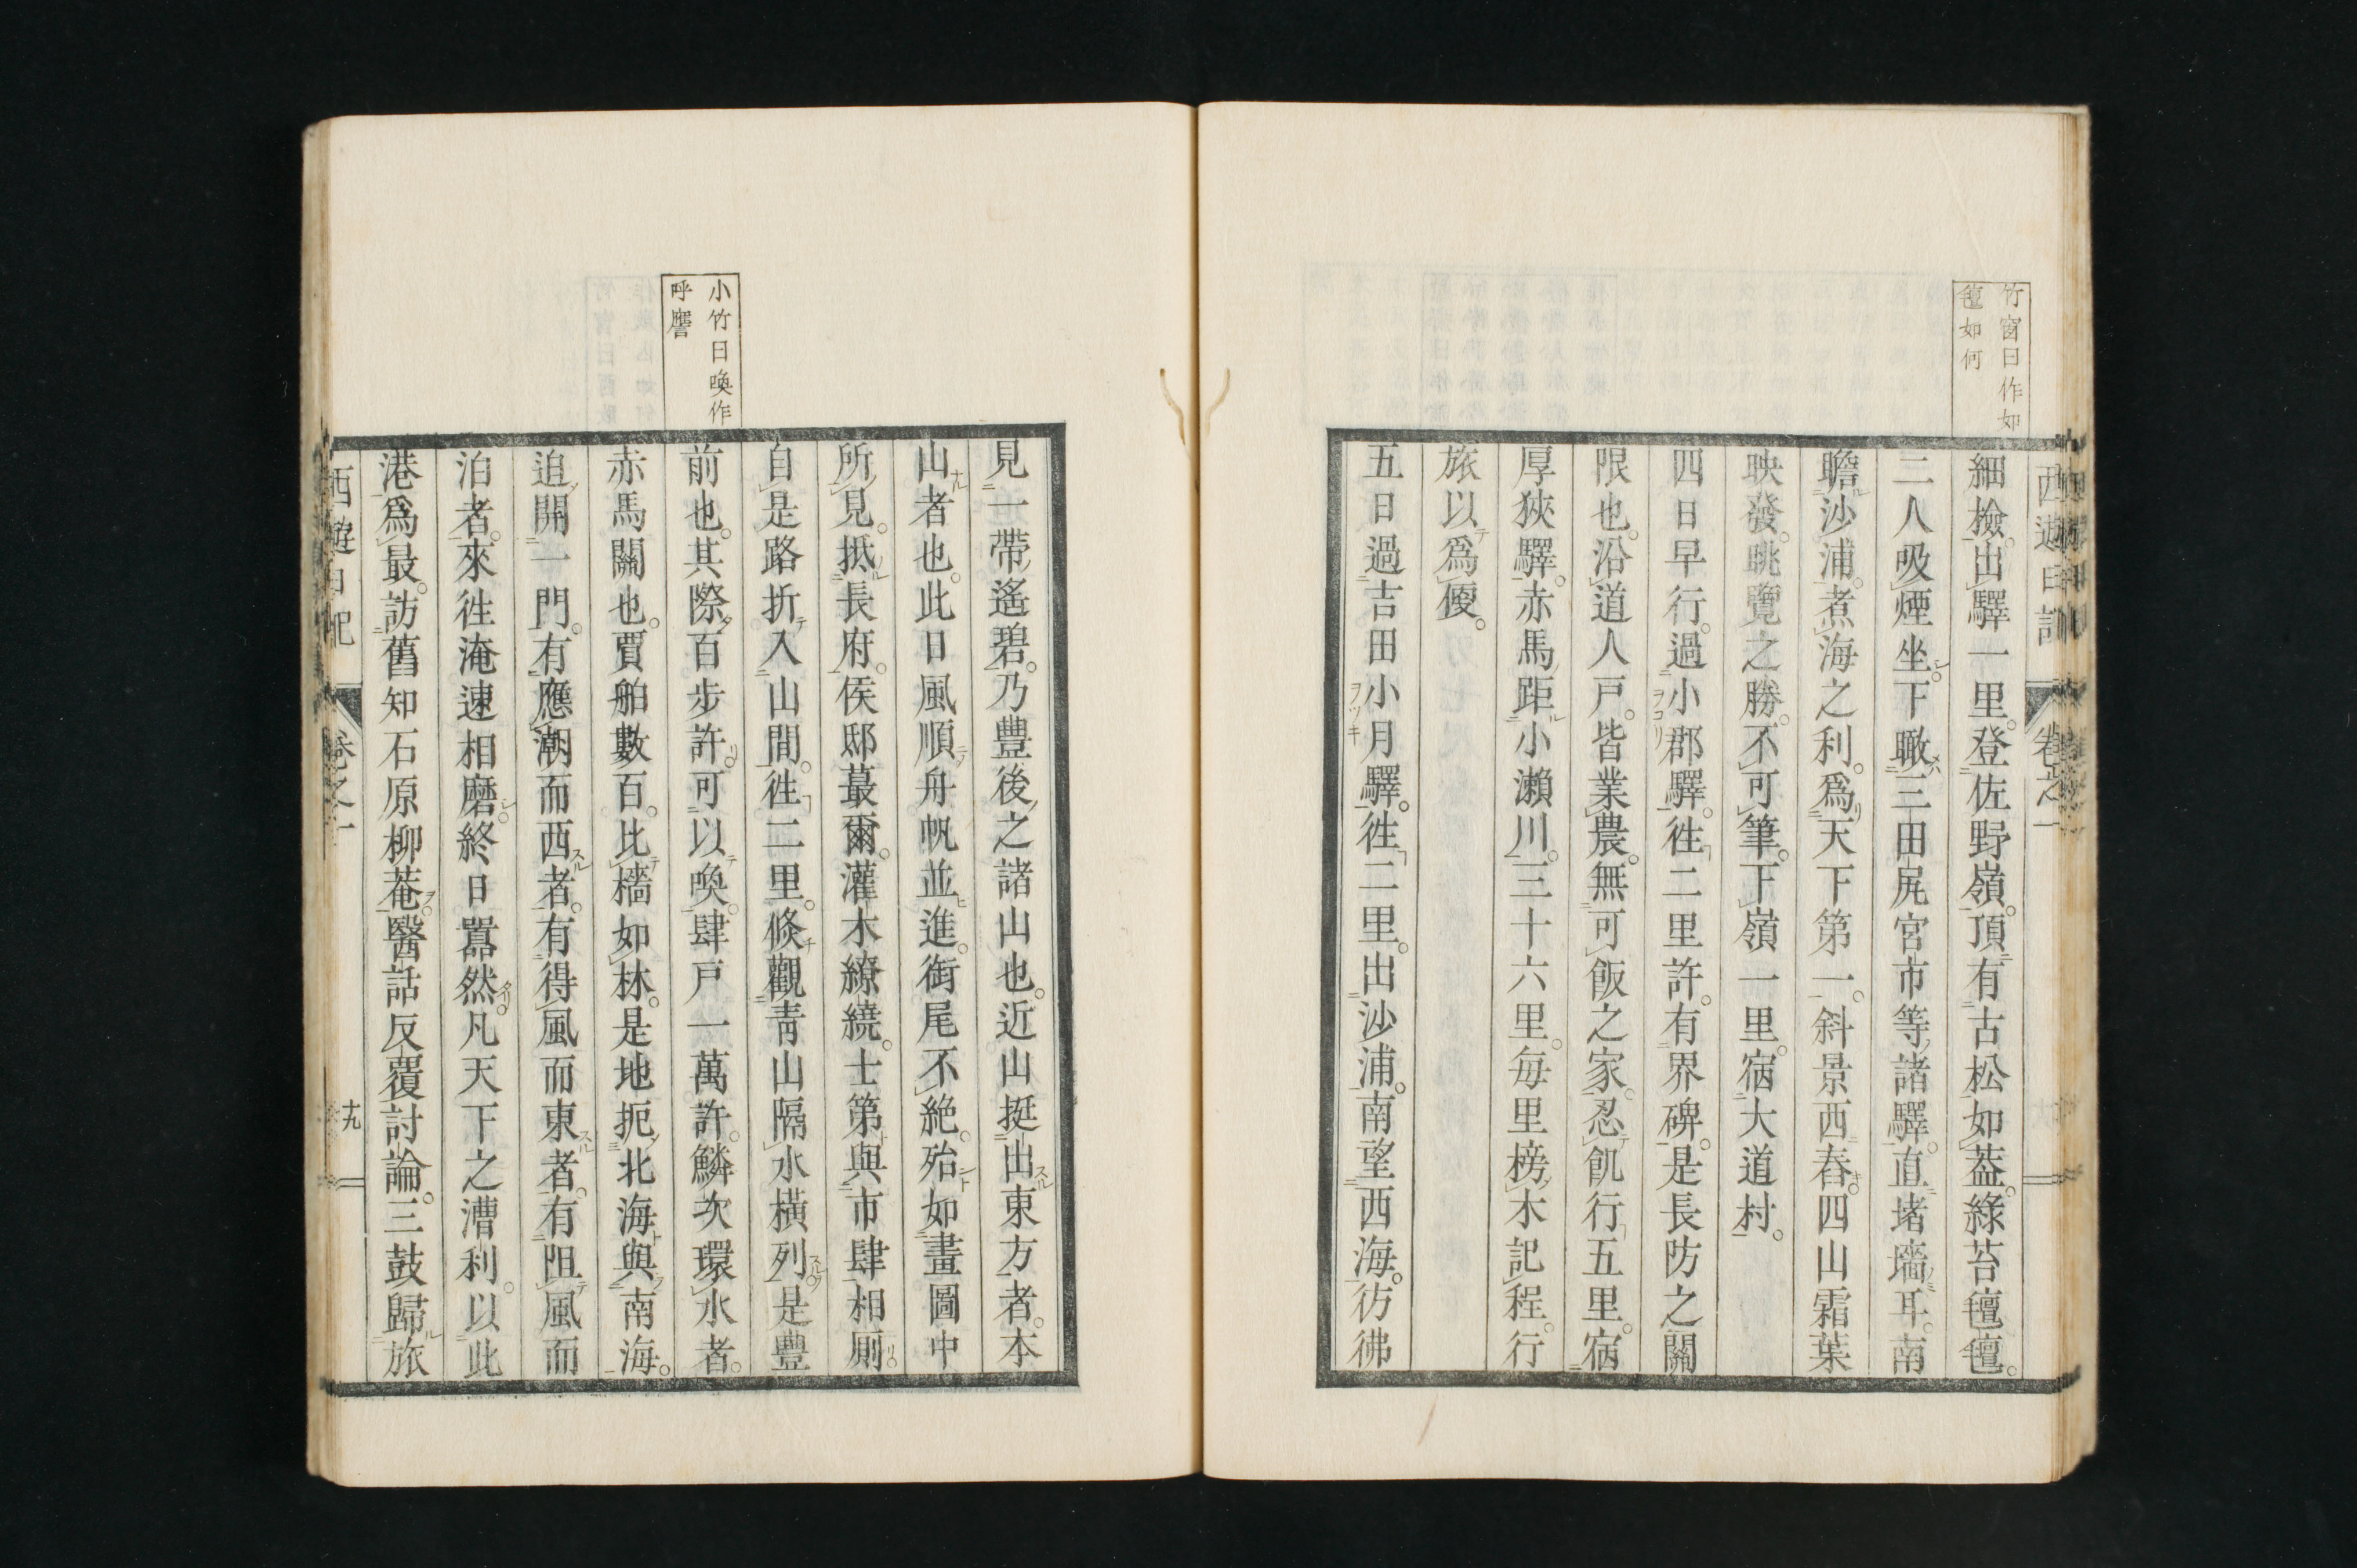 竹窗曰作如
氊如何
西遊日記
卷之一
細檢。出驛一里。登佐野嶺。頂有古松如葢。綠苔氊氊。
二人吸煙坐。下瞰三田尻宮市等諸驛。直堵墻耳。南
瞻沙浦。煮海之利。爲天下第一。斜景西舂。四山霜葉
映發。眺覽之勝。不可筆。下嶺一里。宿大道村。
四日早行。過小郡驛。徃二里許。有界碑。是長防之關
限也。沿道人戶。皆業農。無可飯之家。忍飢行五里。宿
厚狹驛。赤馬距小瀨川。三十六里。每里榜木記程。行
旅以爲便。
五日過吉田小月驛。徃二里。出沙浦。南望西海。彷彿
見一帶遙碧。乃豐後之諸山也。近山挺出東方者。本
山者也。此日風順舟帆並進。銜尾不絕。殆如畫圖中
所見。抵長府。侯邸蕞爾。灌木繚繞。士第與市肆相厠。
自是路折入山間。徃二里。倏觀靑山隔水橫列。是豐
前也。其際百步許。可以喚。肆戶一萬許。鱗次環水者。
赤馬關也。賈舶數百。比檣如林。是地扼北海與南海。
追開一門。有應潮而西者。有得風而東者。有阻風而
泊者。來徃淹速相磨。終日囂然。凡天下之漕利。以此
港爲最。訪舊知石原柳菴。醫話反覆討論。三鼓歸旅
小竹曰喚作
呼譍
西遊日記
卷之一
十九